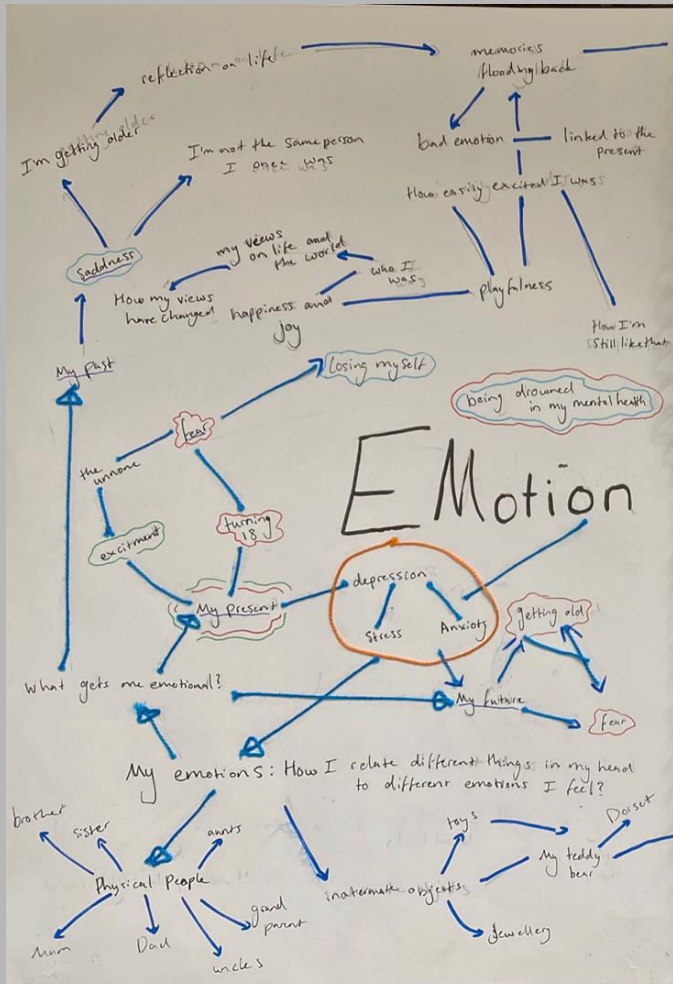 reflection on life
memories
flooding back
I'm getting older
I'm not the same person
I once was
bad emotion
linked to the
present
How easily excited I was
saddness
my views
on life and
the world
who I
was
How my views
have changed
happiness and
joy
playfulness
How I'm
still like that
My past
losing myself
being drowned
in my mental health
fear
the unnone
EMotion
turning
18
excitment
depression
Stress
Anxioty
My present
getting old
What gets me emotional?
My future
fear
My emotions: How I relate different things in my head
to different emotions I feel?
brother
sister
aunts
toys
Dorset
My teddy
bear
Physical People
inatermate objects
grand
parent
Mum
Dad
uncles
Jewellery